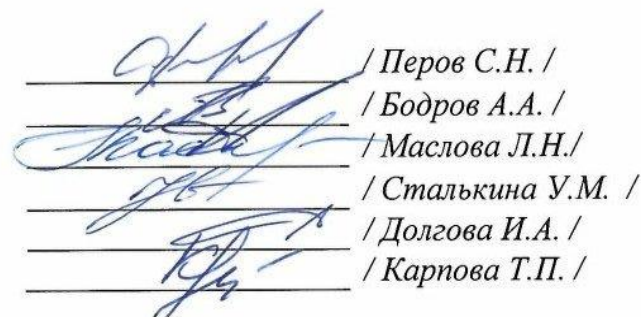 / Перов С.Н. /
/ Бодров А.А. /
/ Маслова Л.Н./
/ Сталькина У.М. /
/ Долгова И.А. /
/ Карпова Т.П. /